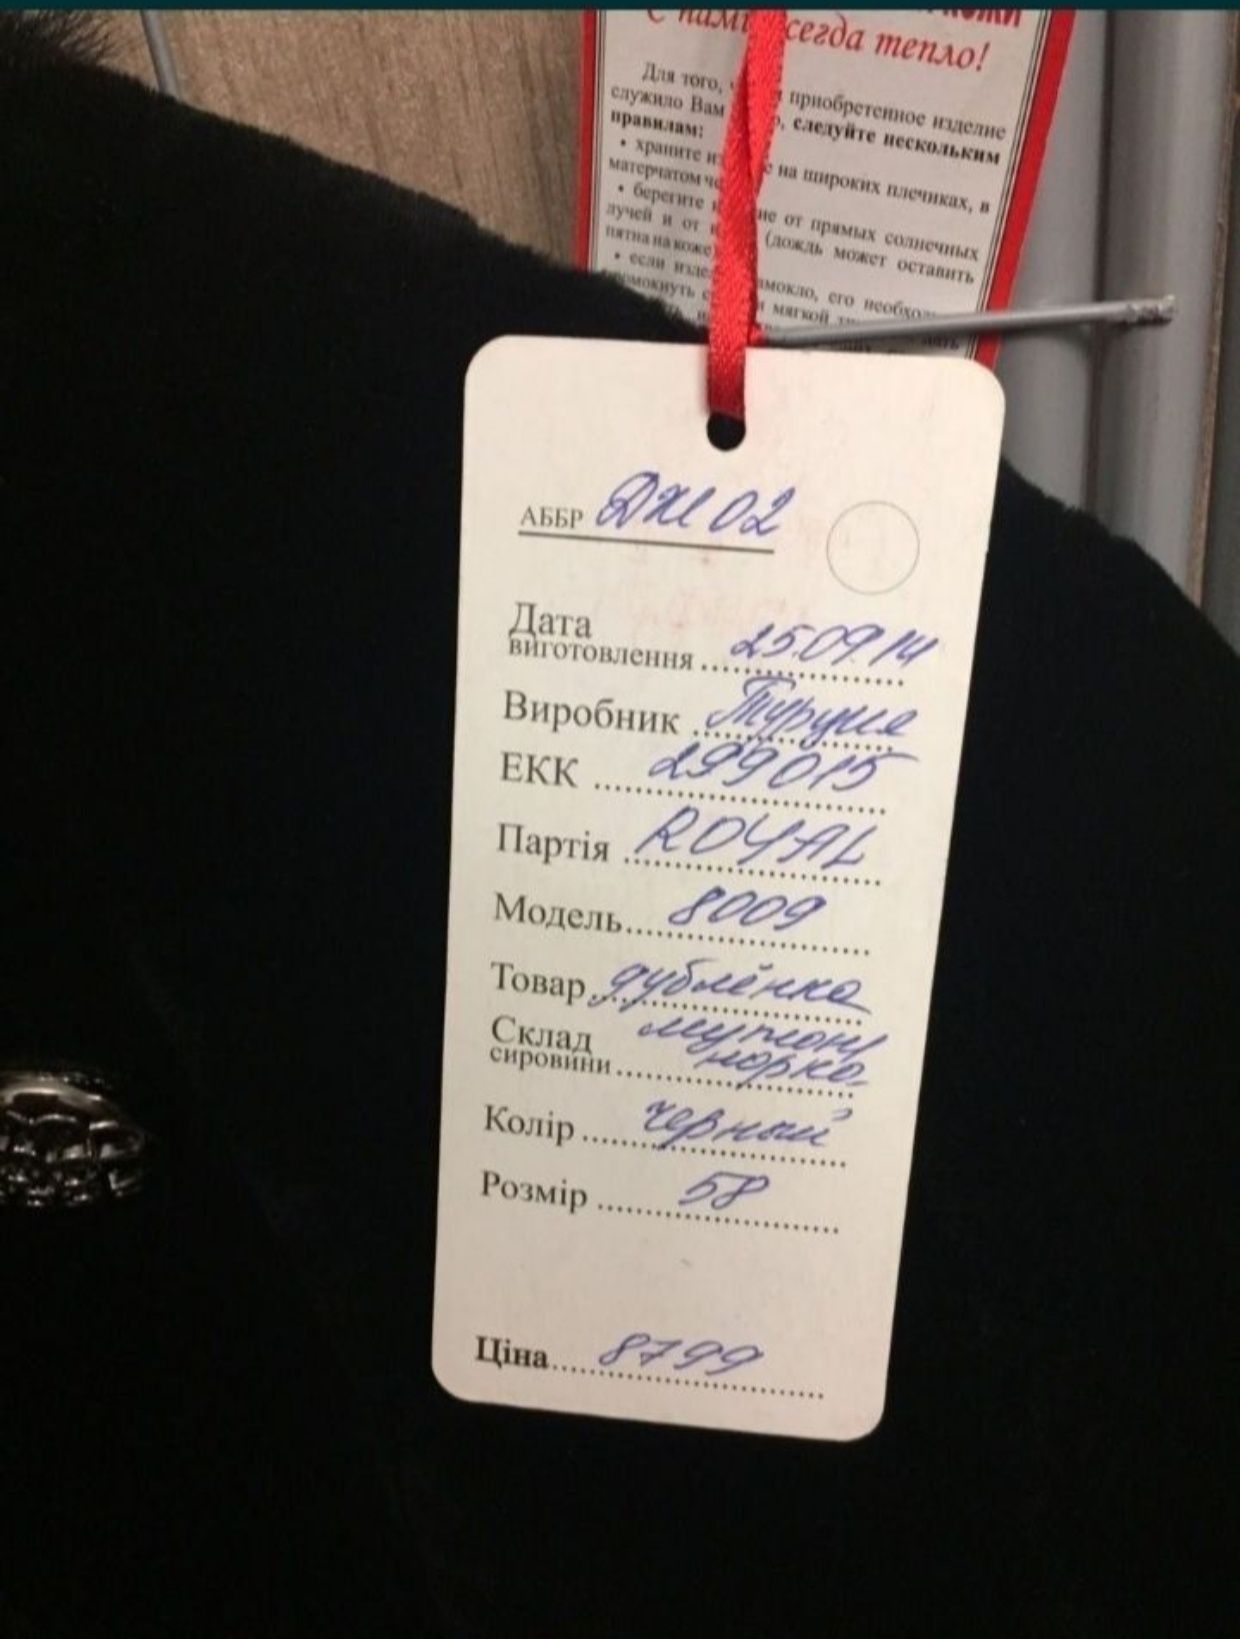 КОЖИ
С нами всегда тепло!
Для того, приобретенное изделие
служило Вам следуйте нескольким
правилам:
• храните на широких плечиках, в
матерчатом
• берегите от прямых солнечных
лучей и от (дождь может оставить
пятна на коже)
• если замокло, его необходимо
мягкой
АББР ДЖ 02
Дата
виготовлення 25.09.14
Виробник Турция
ЕКК 299015
Партія ROYAL
Модель 8009
Товар дублёнка
Склад мутон,
сировини норка
Колір черный
Розмір 58
Ціна 8799